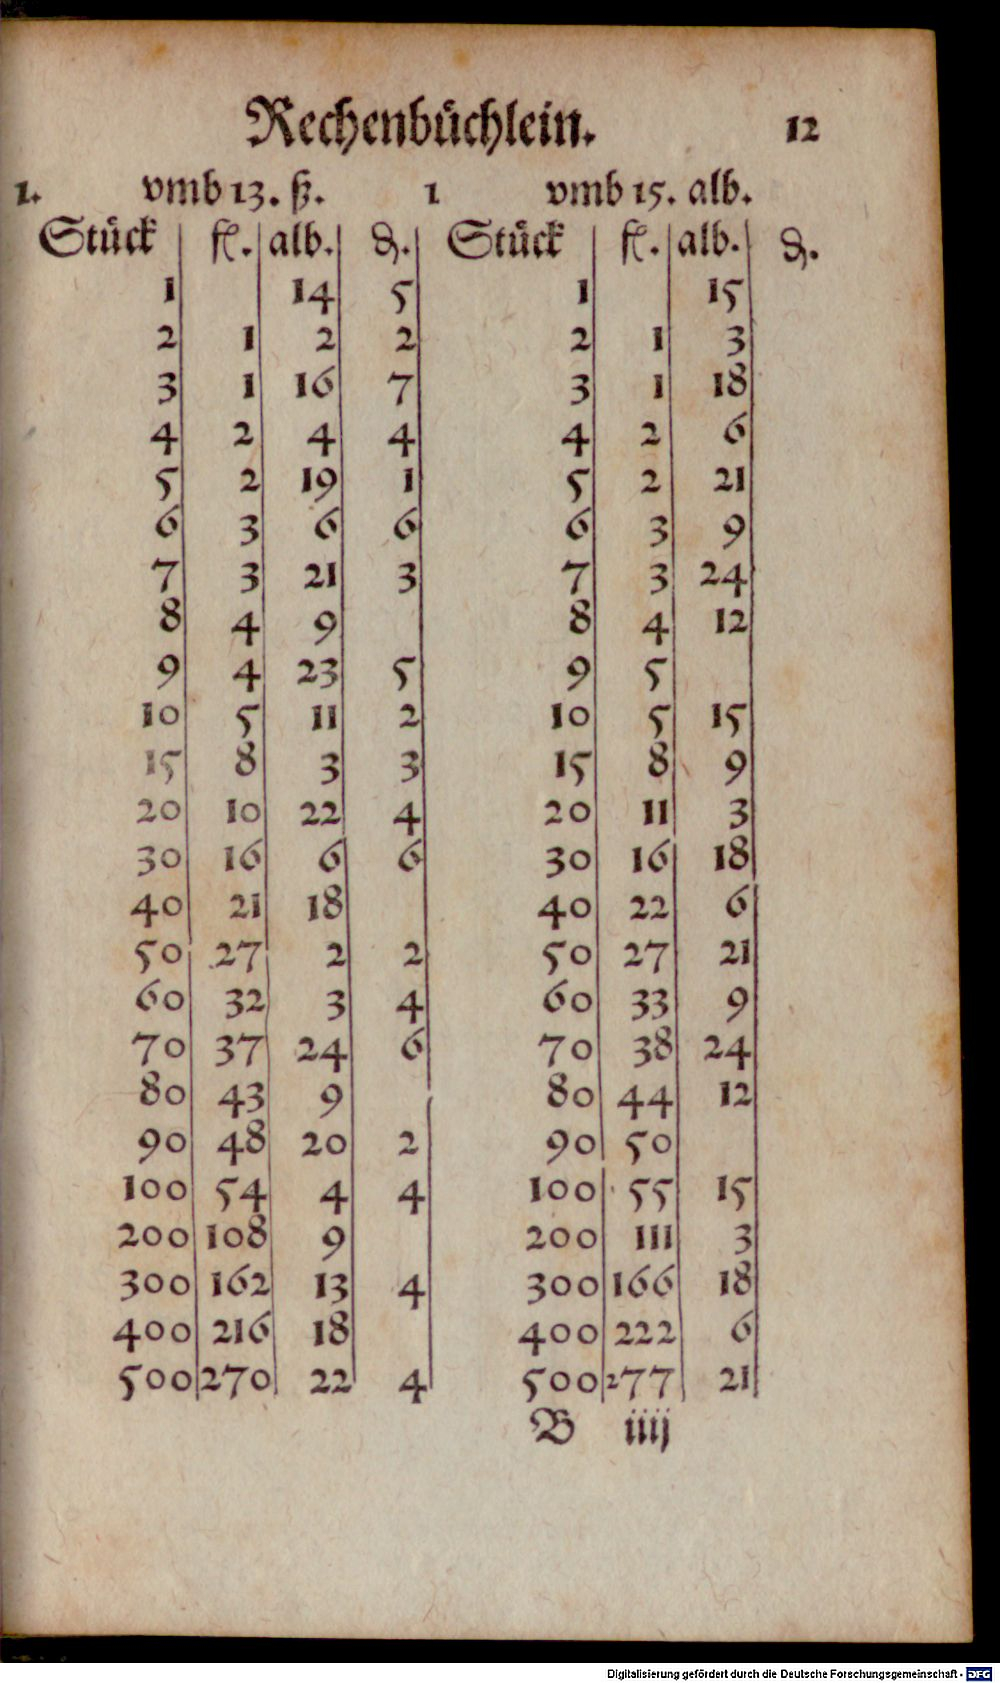 Rechenbüchlein. 12
1. vmb 13. ß. 1 vmb 15. alb.
Stück fl. alb. ₰. Stück fl. alb. ₰.
1 14 5 1 15
2 1 2 2 2 1 3
3 1 16 7 3 1 18
4 2 4 4 4 2 6
5 2 19 1 5 2 21
6 3 6 6 6 3 9
7 3 21 3 7 3 24
8 4 9 8 4 12
9 4 23 5 9 5
10 5 11 2 10 5 15
15 8 3 3 15 8 9
20 10 22 4 20 11 3
30 16 6 6 30 16 18
40 21 18 40 22 6
50 27 2 2 50 27 21
60 32 3 4 60 33 9
70 37 24 6 70 38 24
80 43 9 80 44 12
90 48 20 2 90 50
100 54 4 4 100 55 15
200 108 9 200 111 3
300 162 13 4 300 166 18
400 216 18 400 222 6
500 270 22 4 500 277 21
B iiij
Digitalisierung gefördert durch die Deutsche Forschungsgemeinschaft - DFG